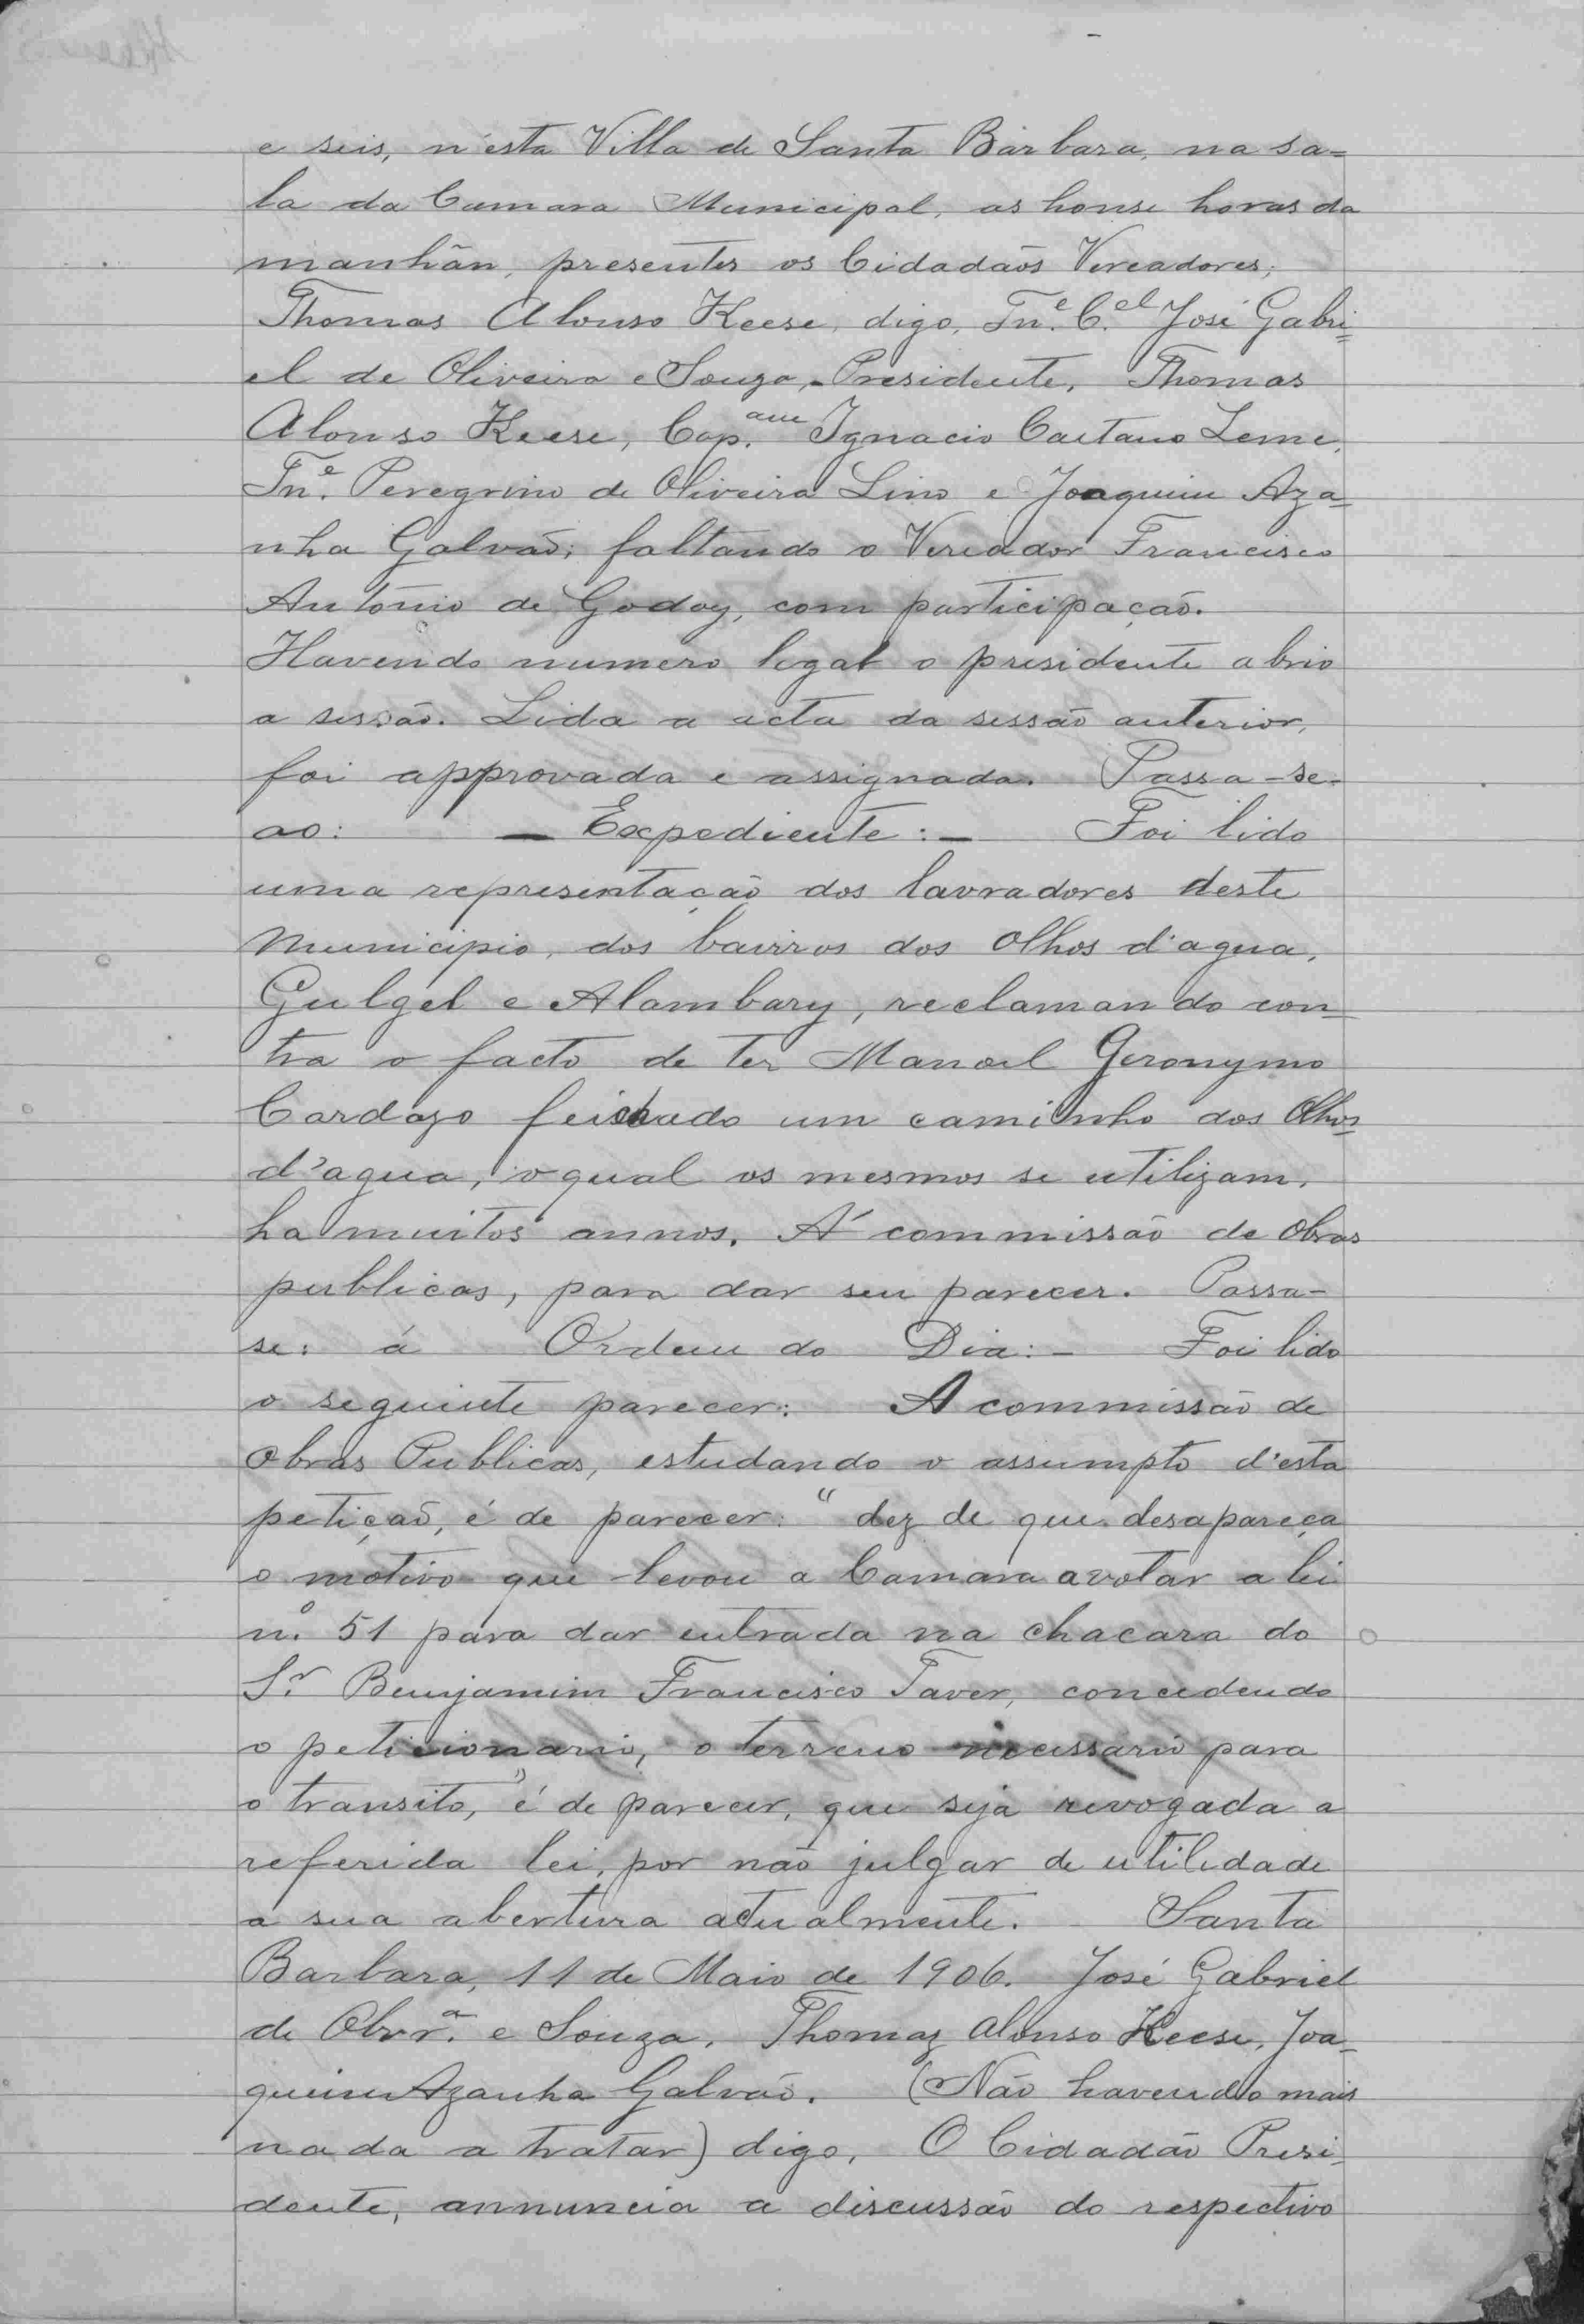 e seis, n'esta Villa de Santa Bárbara, na sa=
la da Camara Municipal, as honse horas da
manhãn, presentes os Cidadãos Vereadores;
Thomas Alonso Keese, digo, Tn.e C.el José Gabri=
el de Oliveira e Souza, - Presidente, Thomas
Alonso Keese, Cap.am Ignacio Caetano Leme,
Tn.e Peregrino de Oliveira Lino e Joaquim Aza=
nha Galvão; faltando o Vereador Francisco
Antonio de Godoy, com participação.
Havendo numero legal o presidente abrio
a sessão. Lida a acta da sessão anterior,
foi approvada e assignada. Passa-se-
ao: — Expediente: — Foi lido
uma representação dos lavradores deste
Municipio, dos bairros dos Olhos d'agua,
Gulgel e Alambary, reclamando con=
tra o facto de ter Manoel Geronymo
Cardozo feichado um caminho dos Olhos=
d'agua, o qual os mesmos se utilizam,
ha muitos annos. Á commissão de Obras
publicas, para dar seu parecer. Passa-
se: á Ordem do Dia: - Foi lido
o seguinte parecer: A commissão de
Obras Publicas, estudando o assumpto d'esta
petição, é de parecer: "dez de que desapareça
o motivo que levou a Camara a votar a lei
n.o 51 para dar entrada na chacara do
S.r Benjamim Francisco Taver, concedendo
o peticionario, o terreno necessario para
o transito," é de parecer, que seja revogada a
referida lei, por não julgar de utilidade
a sua abertura actualmente. Santa
Barbara, 11 de Maio de 1906. José Gabriel
de Olivr.a e Souza, Thomaz Alonso Keese, Joa=
quim Azanha Galvão. (Não havendo mais
nada a tratar) digo, O Cidadão Presi=
dente, annuncia a discussão do respectivo